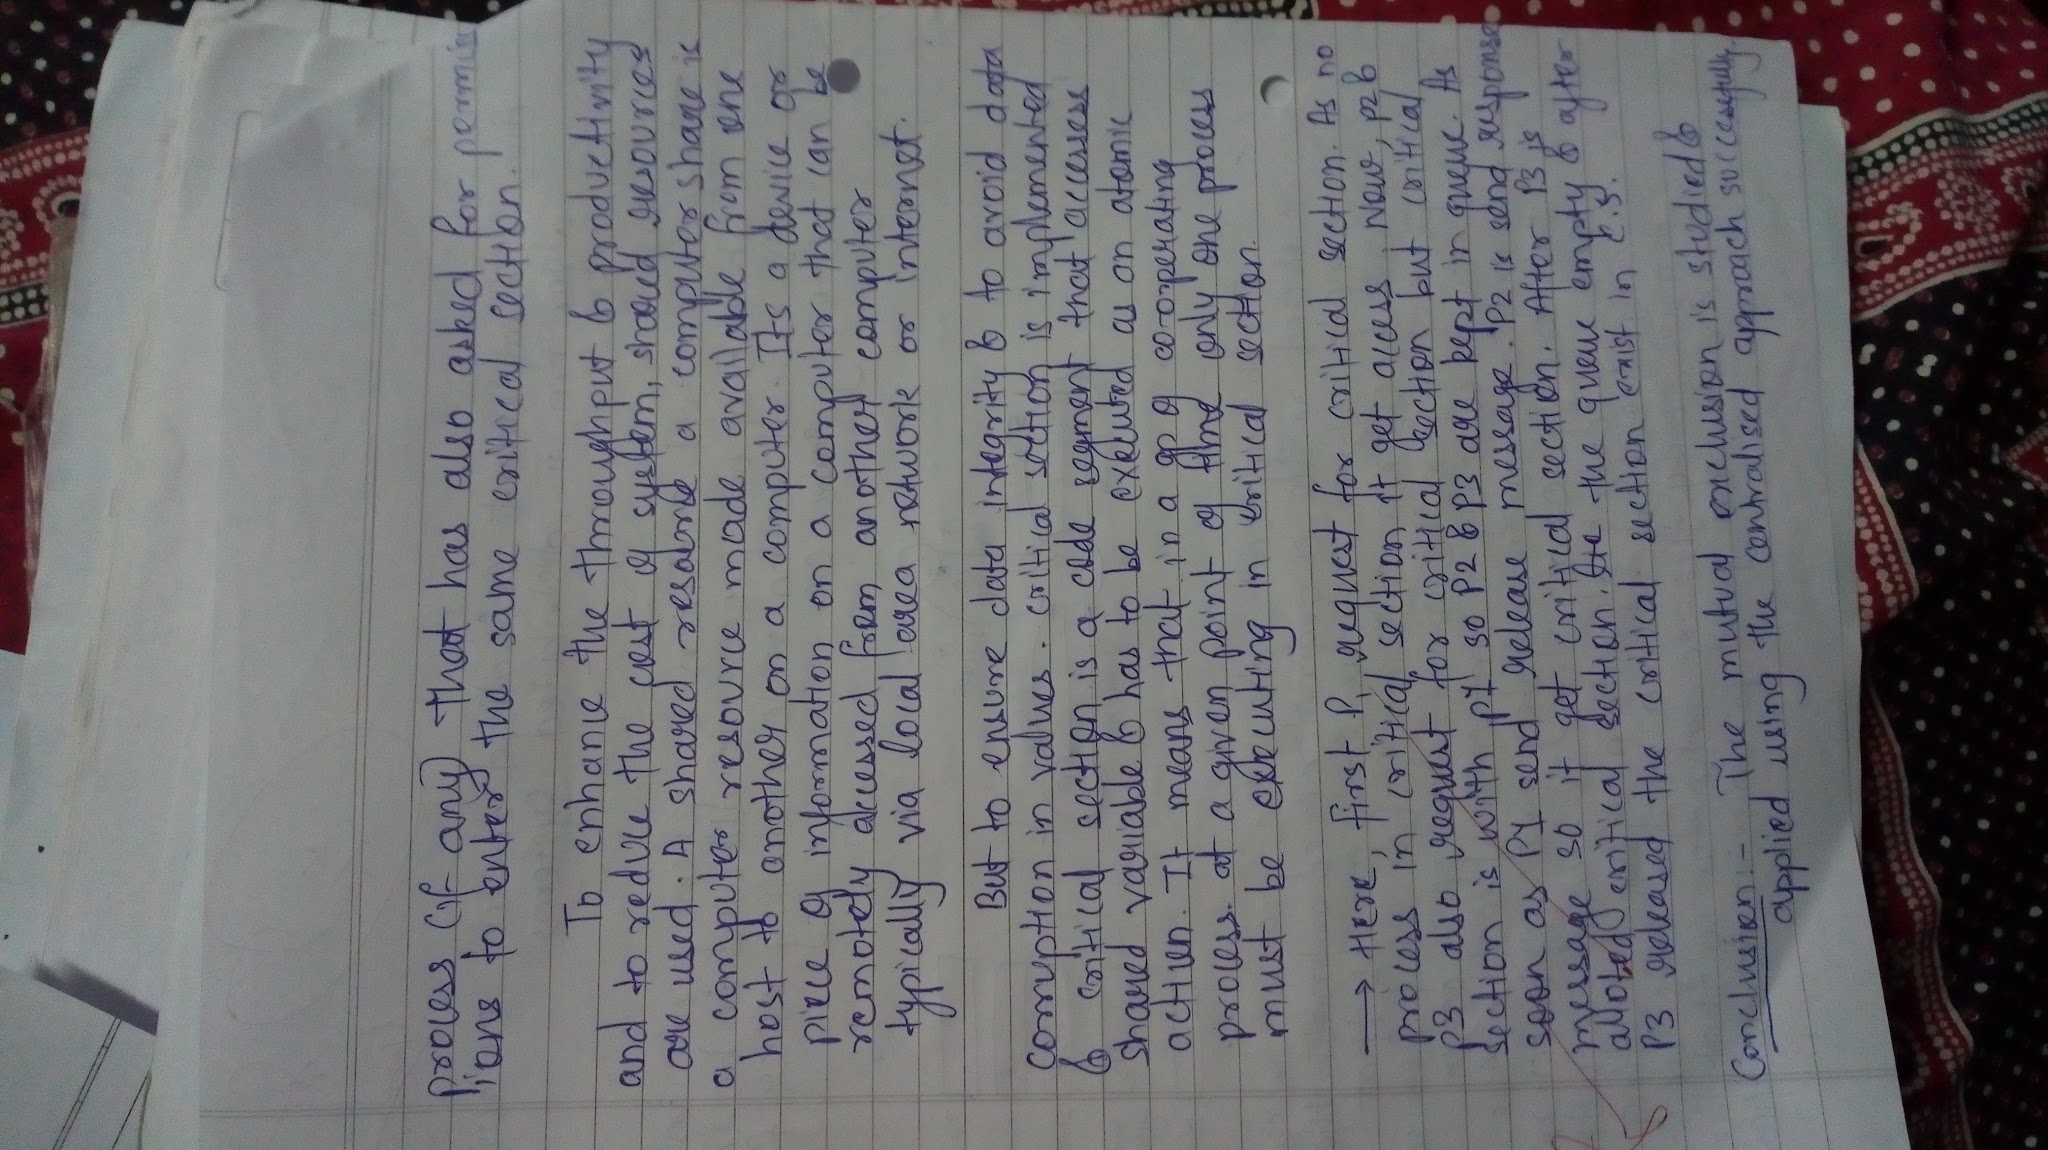 process (if any) that has also asked for permiss
ions to enter the same critical section.
To enhance the throughput & productivity
and to reduce the cost of system, shared resources
are used. A shared resource a computer share is
a computer resource made available from one
host to another on a computer. Its a device or
piece of information on a computer that can be
remotely accessed from another computer
typically via local area network or internet.
But to ensure data integrity & to avoid data
corruption in values. critical section is implemented
& critical section is a code segment that accesses
shared variable & has to be executed as an atomic
action. It means that in a gp of cooperating
process. at a given point of time only one process
must be executing in critical section.
→ Here, first P1 request for critical section. As no
process in critical section it get access. Now, P2 &
P3 also request for critical section but critical
section is with P1 so P2 & P3 are kept in queue. As
soon as P1 send release message. P2 is send response
message so it get critical section. After P3 is
alloted critical section. the queue empty & after
P3 released the critical section exist in C.S.
Conclusion:- The mutual exclusion is studied &
applied using the centralised approach successfully.